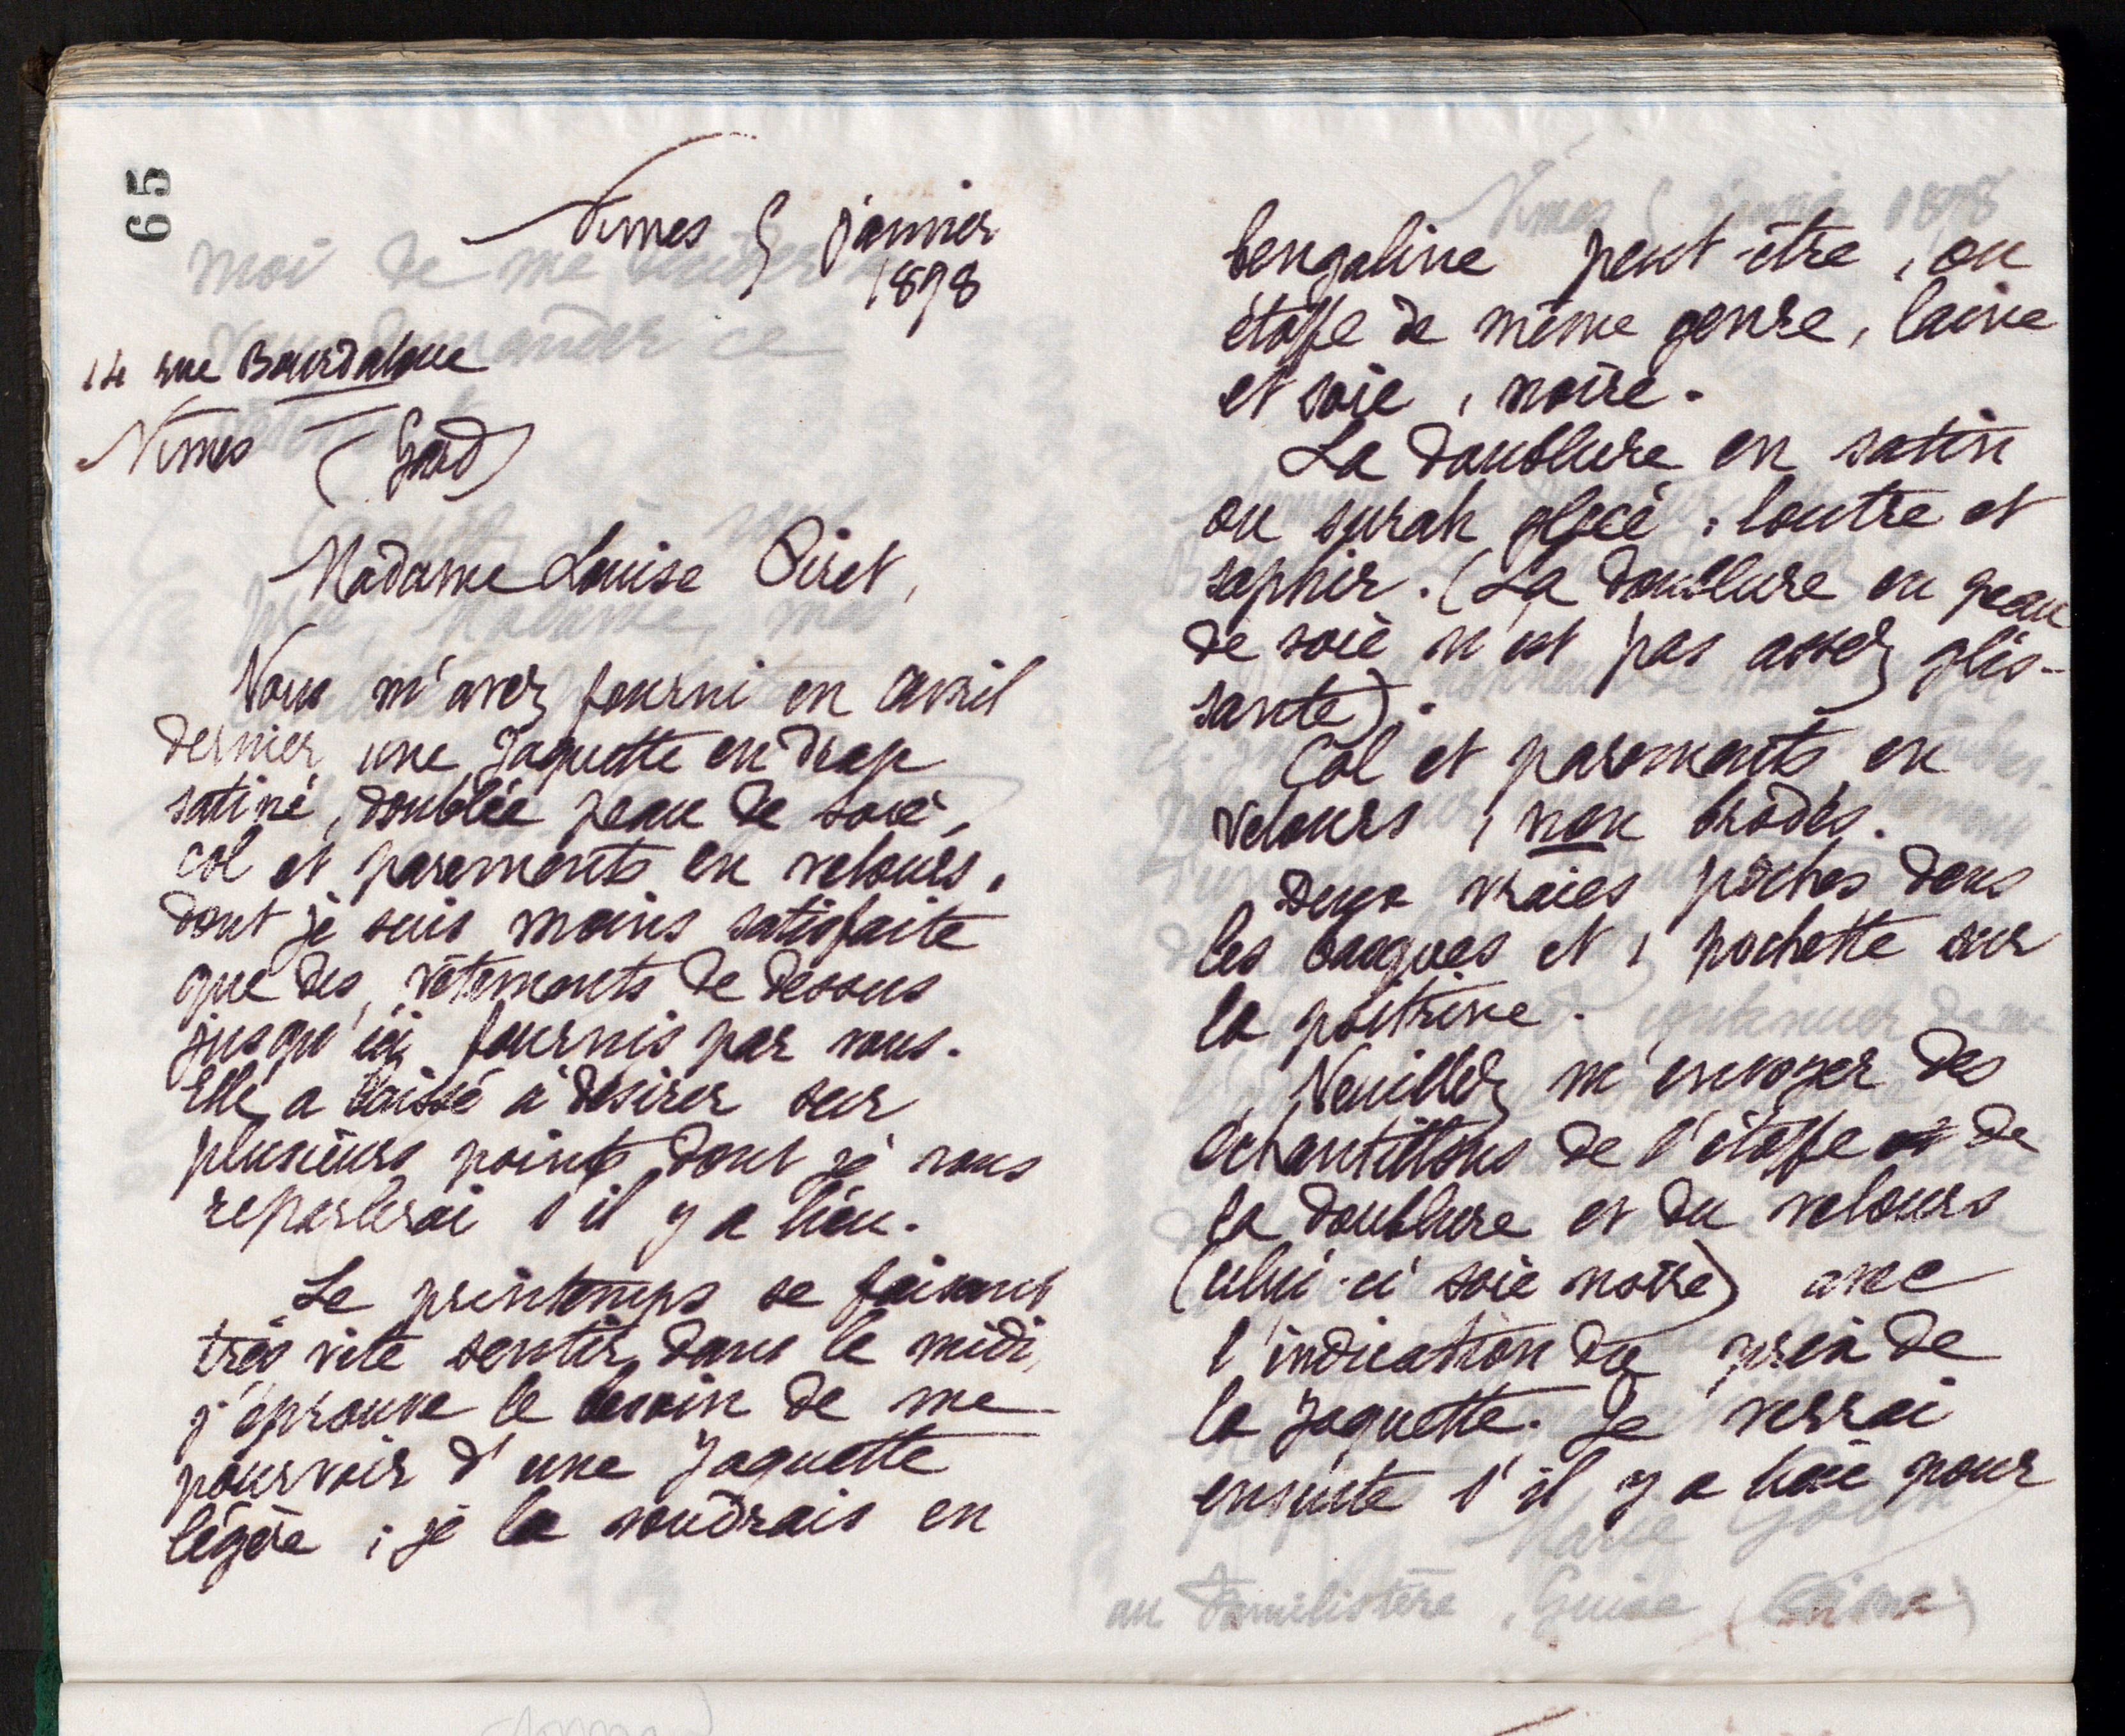 65
Nîmes 5 janvier
1898
14 rue Bourdaloue
Nîmes (Gard)
Madame Louise Piret,
Vous m'avez fourni en avril
dernier une jaquette en drap
satiné, doublée peau de soie,
col et parements en velours,
dont je suis moins satisfaite
que des vêtements de dessus
jusqu'ici fournis par vous.
Elle a laissé à désirer sur
plusieurs points dont je vous
reparlerai s'il y a lieu.
Le printemps se faisant
très vite sentir dans le midi,
j'éprouve le besoin de me
pourvoir d'une jaquette
légère ; je la voudrais en
bengaline peut-être, ou
étoffe de même genre, laine
et soie, noire.
La doublure en satin
ou surah glacé : loutre et
saphir. (La doublure en peau
de soie n'est pas assez glis-
sante).
Col et parements en
velours, non brodés.
Deux vraies poches dans
les basques et 1 pochette sur
la poitrine.
Veuillez m'envoyer des
échantillons de l'étoffe de
la doublure et du velours
(celui-ci soie noire) avec
l'indication du prix de
la jaquette. Je verrai
ensuite s'il y a lieu pour